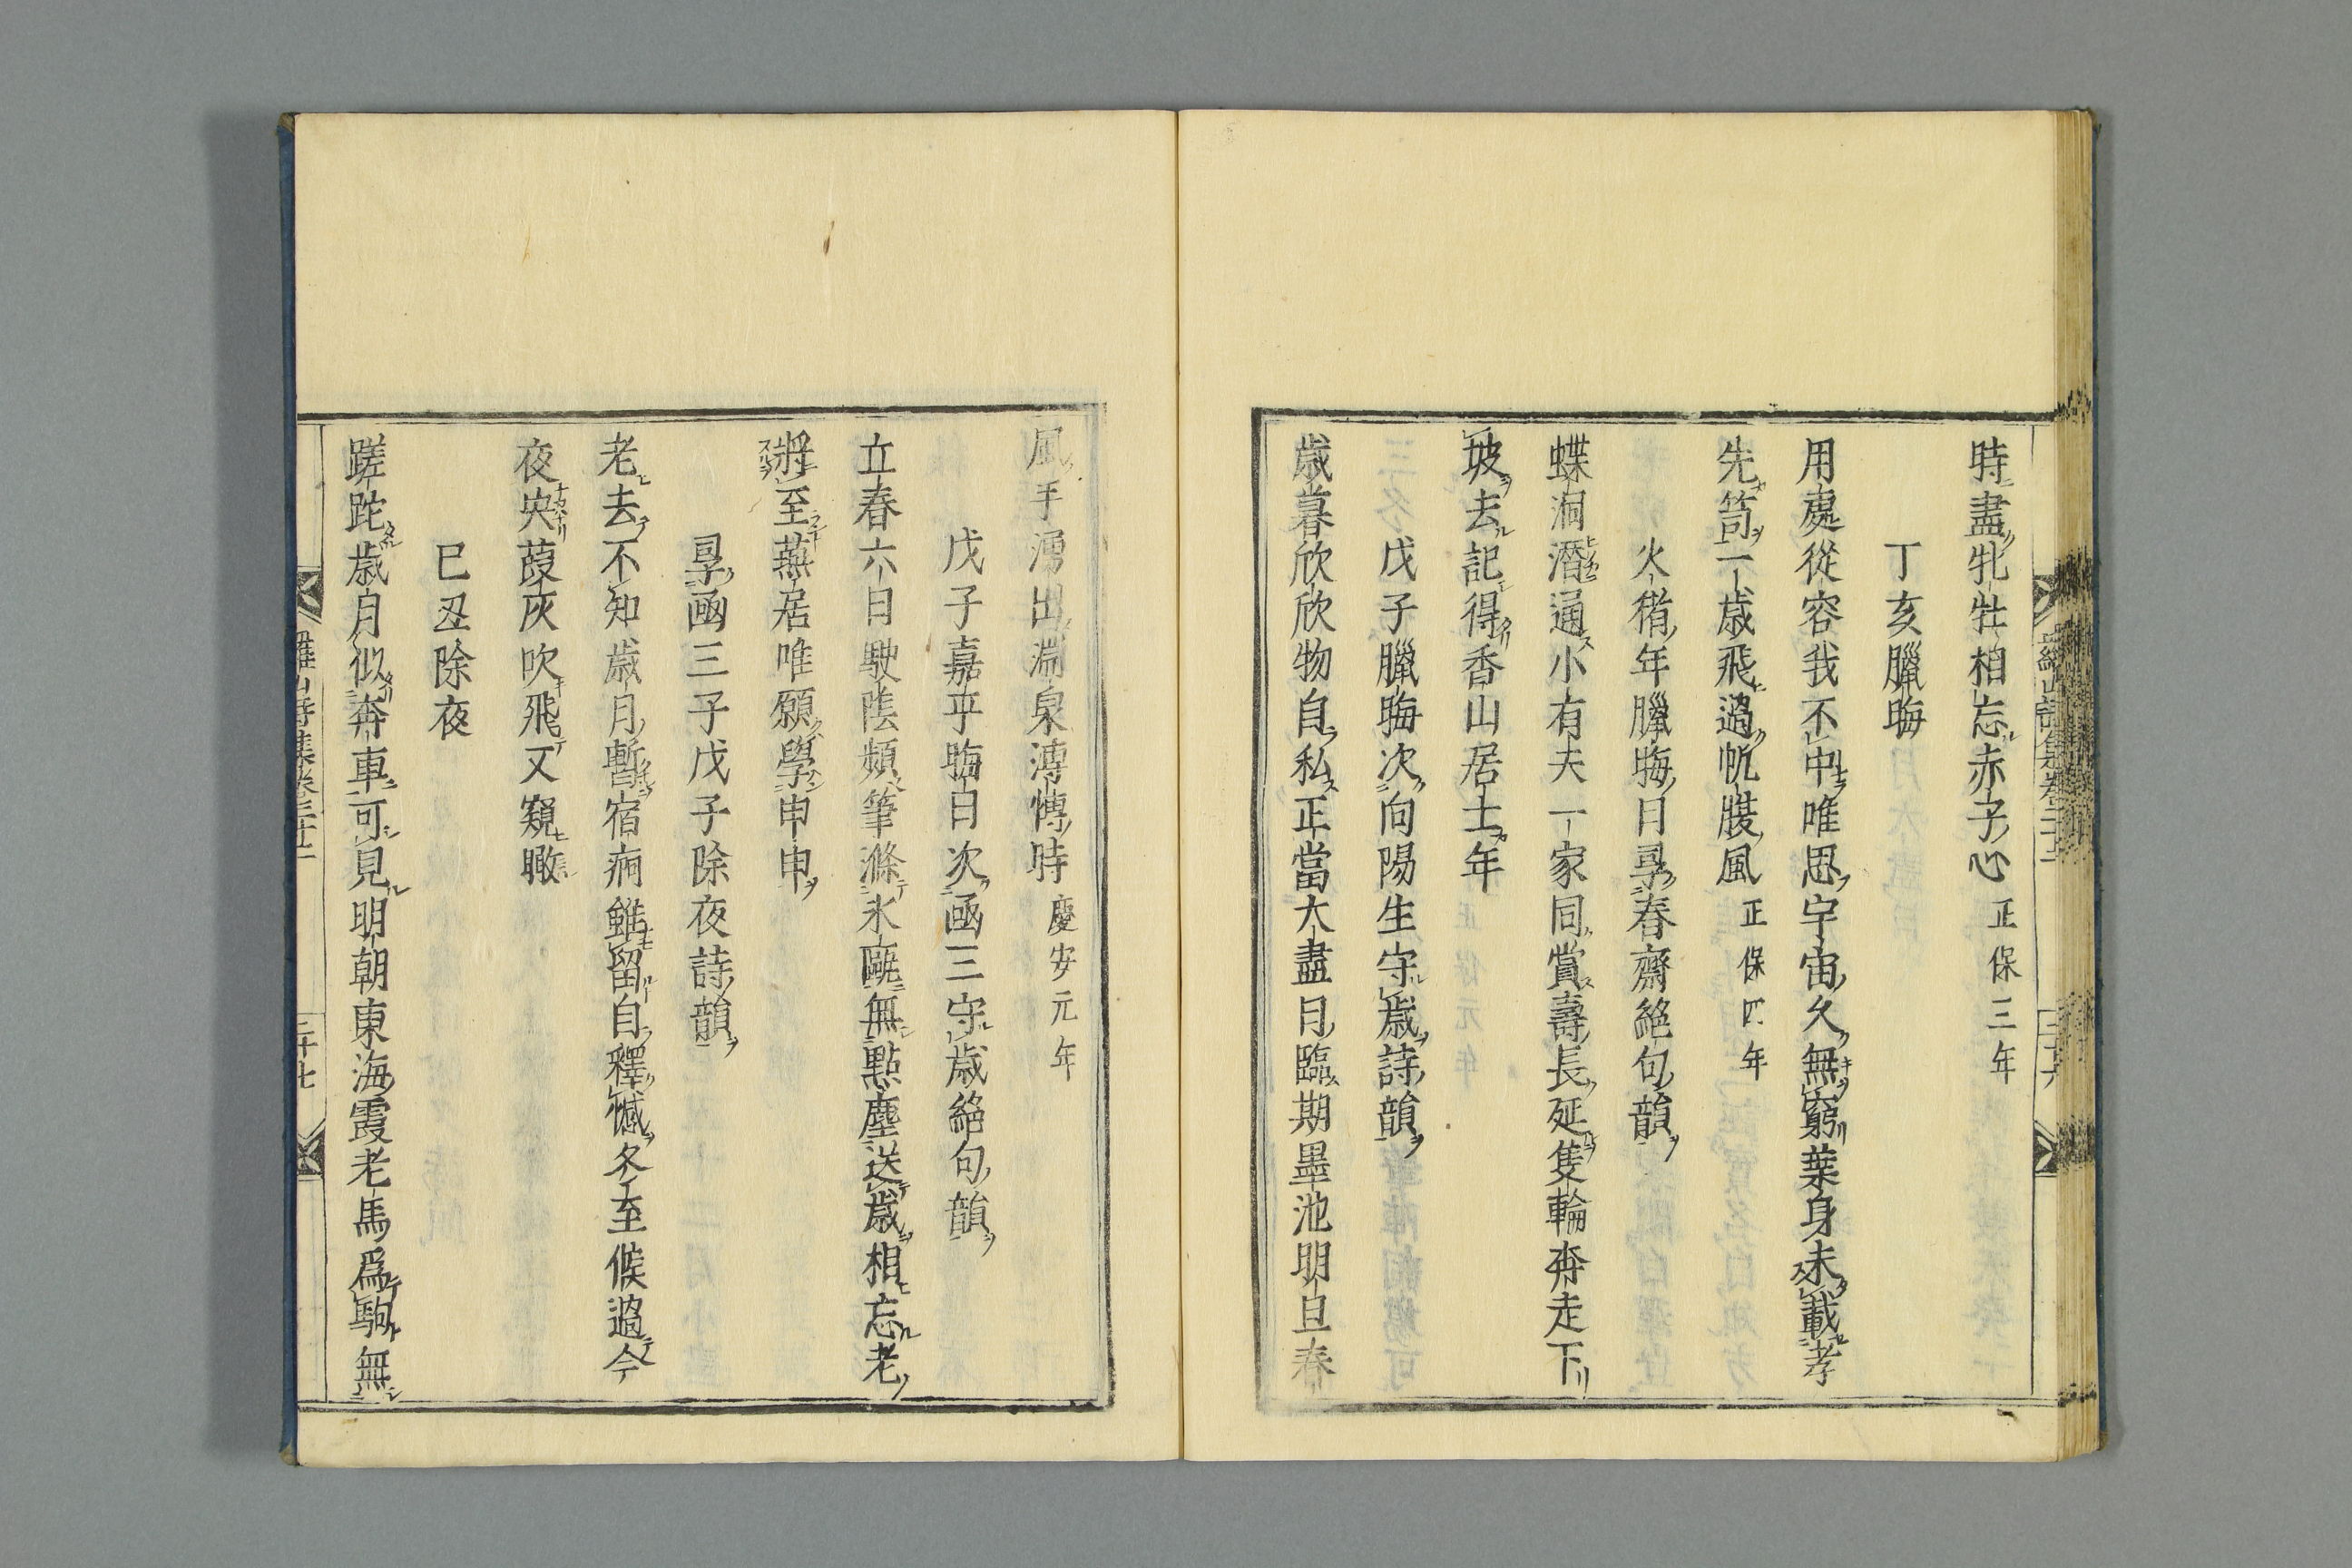 時盡牝牡相忘赤子心 正保三年
丁亥臘晦
用處從容我不中唯思宇宙久無窮葉身未載孝
先笥一歳飛過帆腹風 正保四年
火猪年臘晦日㝷春齋絕句韻
蝶洞潛通小有夫一家同賞壽長延隻輪奔走下
坡去記得香山居士年
戊子臘晦次向陽生守歳詩韻
歳暮欣欣物自私正當大盡日臨期墨池明旦春
風手湧出淵泉溥博時 慶安元年
戊子嘉平晦日次函三守歳絕句韻
立春六日駛陰頻筆滌氷甌無點塵送歳相忘老
將至燕居唯願學申申
㝷函三子戊子除夜詩韻
老去不知歳月暫宿痾雖留自釋憾冬至候過今
夜央葭灰吹飛又窺瞰
己丑除夜
蹉跎歳月似奔車可見明朝東海霞老馬爲駒無
羅山詩集卷三十一
三十七